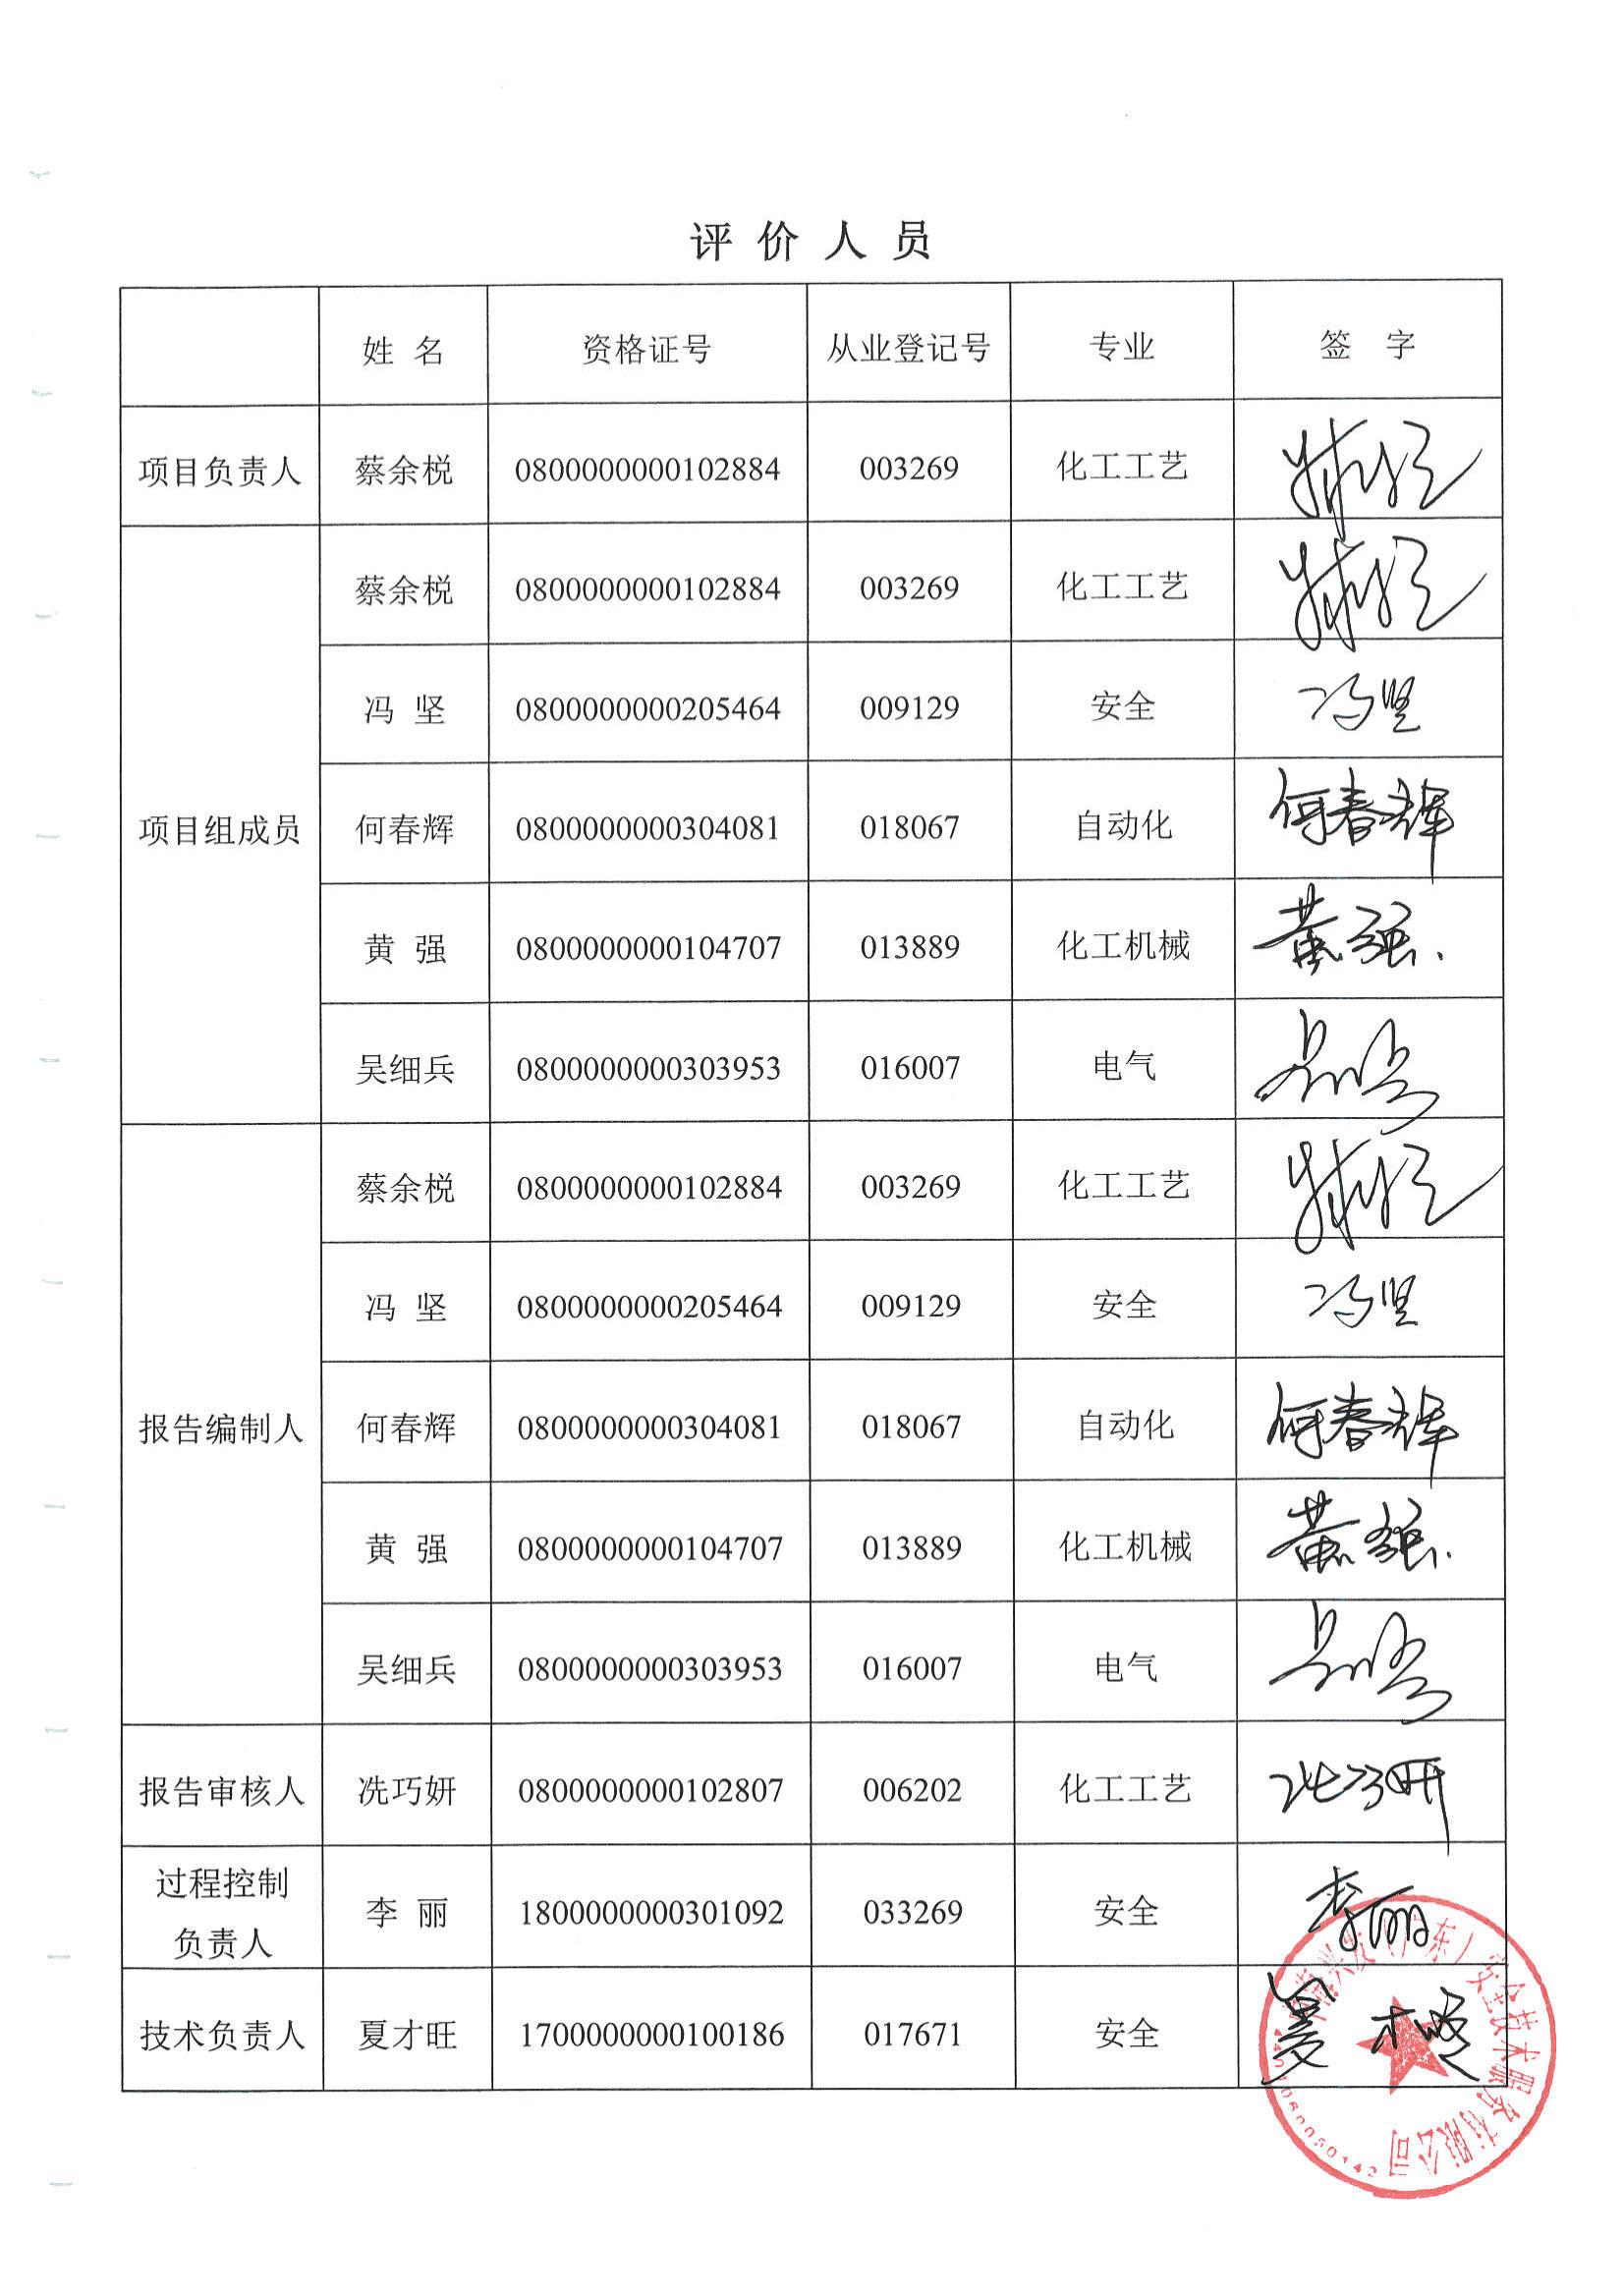 评价人员
姓名 资格证号 从业登记号 专业 签字
项目负责人 蔡余棁 0800000000102884 003269 化工工艺
项目组成员 蔡余棁 0800000000102884 003269 化工工艺
冯坚 0800000000205464 009129 安全 冯坚
何春辉 0800000000304081 018067 自动化 何春辉
黄强 0800000000104707 013889 化工机械 黄强
吴细兵 0800000000303953 016007 电气
报告编制人 蔡余棁 0800000000102884 003269 化工工艺
冯坚 0800000000205464 009129 安全 冯坚
何春辉 0800000000304081 018067 自动化 何春辉
黄强 0800000000104707 013889 化工机械 黄强
吴细兵 0800000000303953 016007 电气
报告审核人 冼巧妍 0800000000102807 006202 化工工艺 冼巧妍
过程控制
负责人 李丽 1800000000301092 033269 安全 李丽
技术负责人 夏才旺 1700000000100186 017671 安全 夏才旺
安全技术服务有限公司